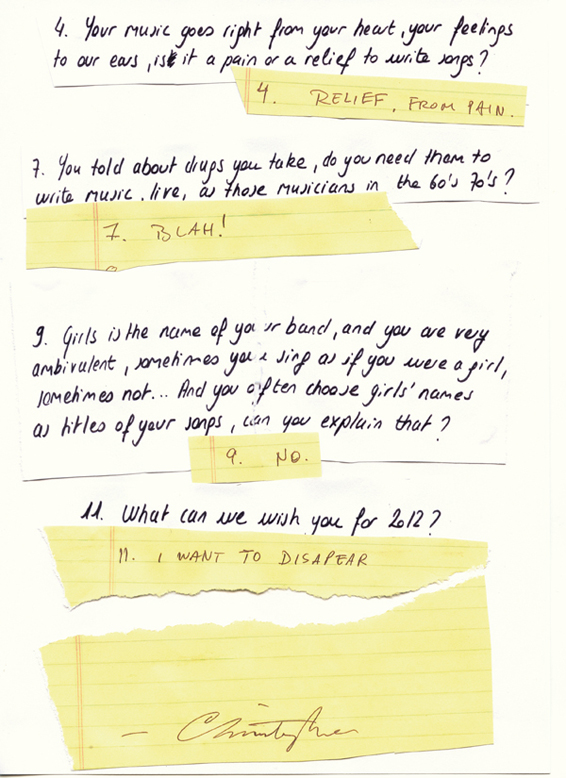 4. Your music goes right from your heart, your feelings
to our ears, is it a pain or a relief to write songs?
4. RELIEF, FROM PAIN.
7. You told about drugs you take, do you need them to
write music, live, as those musicians in the 60's 70's?
7. BLAH!
9. Girls is the name of your band, and you are very
ambivalent, sometimes you sing as if you were a girl,
sometimes not... And you often choose girls' names
as titles of your songs, can you explain that?
9. NO.
11. What can we wish you for 2012?
11. I WANT TO DISAPEAR
– Christopher